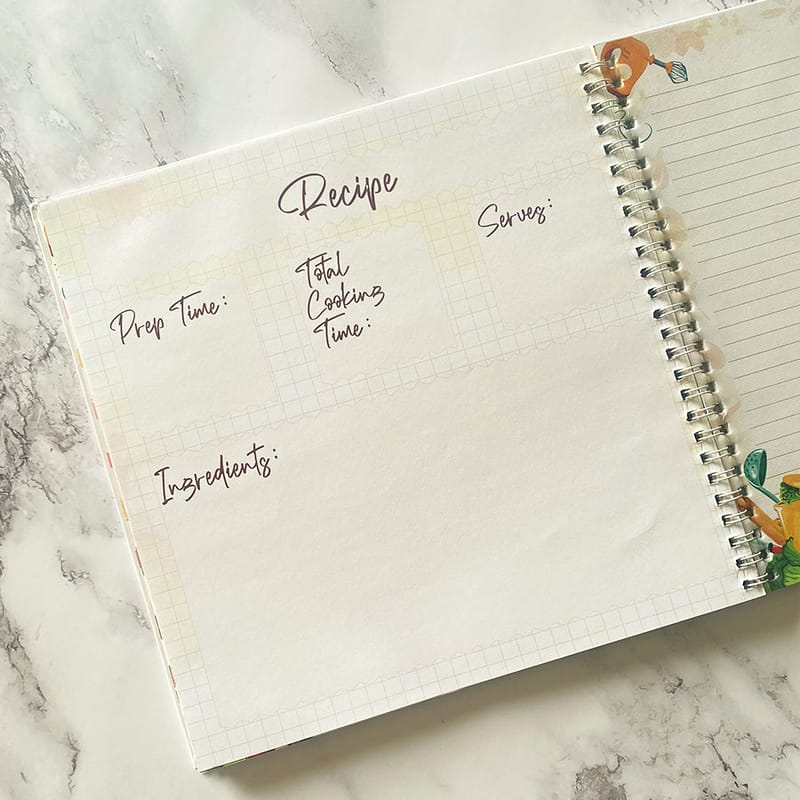 Recipe
Prep Time:
Total
Cooking
Time:
Serves:
Ingredients: